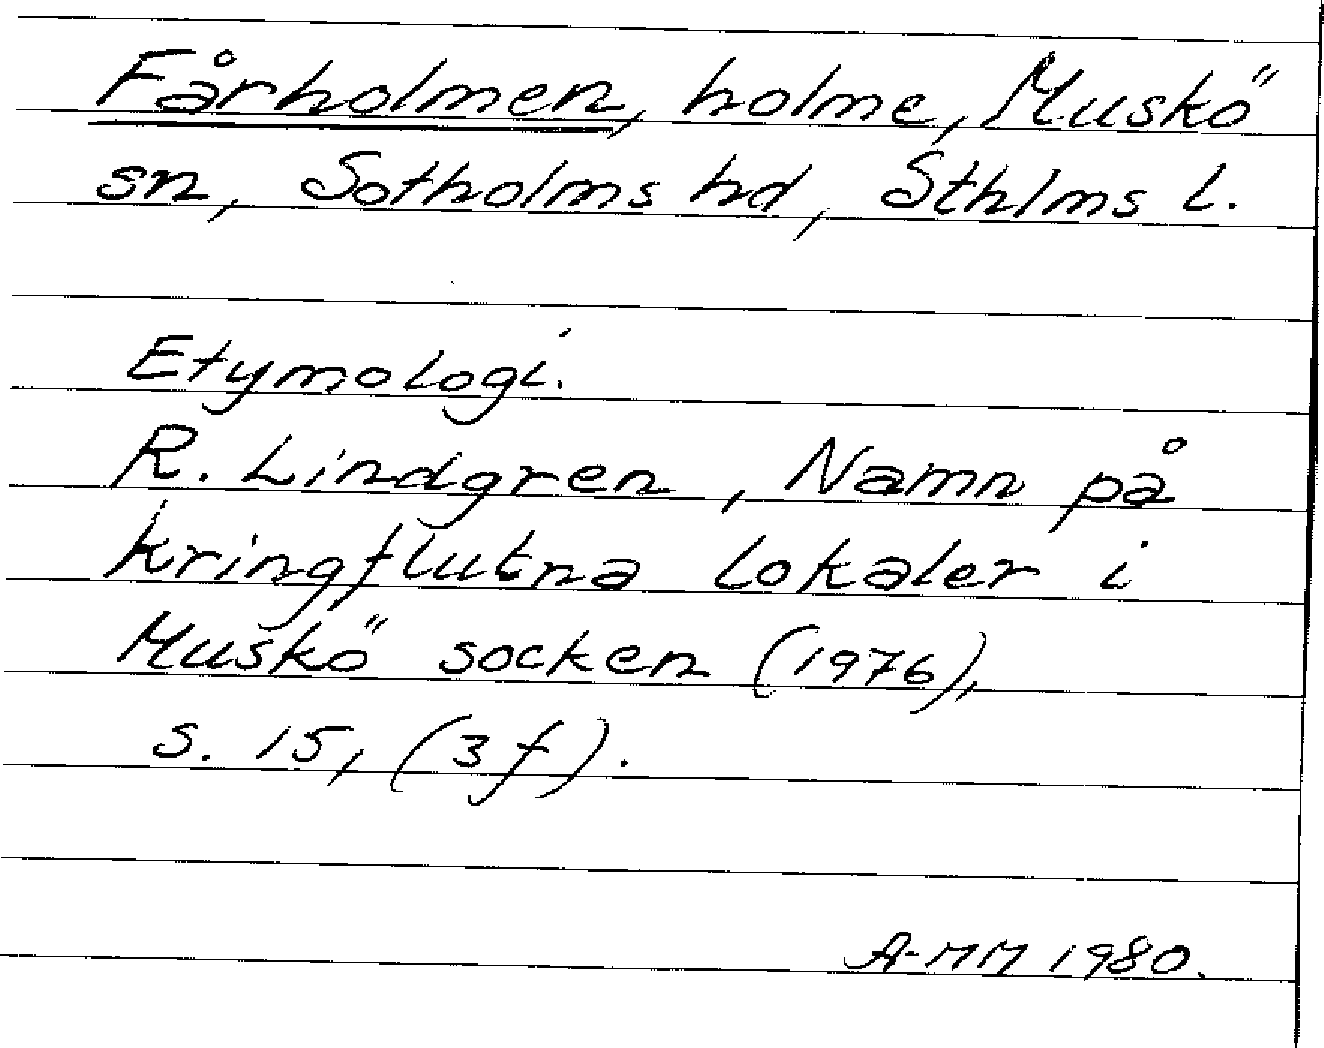 Fårholmen, holme, Muskö
sn, Sotholms hd, Sthlms l.
Etymologi.
R. Lindgren, Namn på
kringflutna lokaler i
Muskö socken (1976),
s. 15, (3 f).
A-MM 1980.